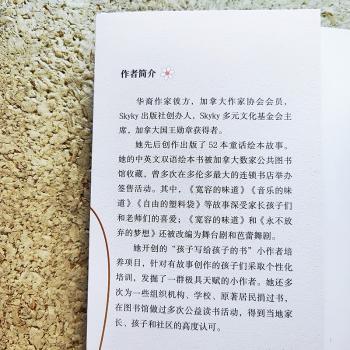 作者简介
华裔作家彼方，加拿大作家协会会员，
Skyky 出版社创办人，Skyky 多元文化基金会主
席，加拿大国王勋章获得者。
她先后创作出版了 52 本童话绘本故事。
她的中英文双语绘本书被加拿大数家公共图书
馆收藏，曾多次在多伦多最大的连锁书店举办
签售活动。其中，《宽容的味道》《音乐的味
道》《自由的塑料袋》等故事深受家长孩子们
和老师们的喜爱；《宽容的味道》和《永不放
弃的梦想》还被改编为舞台剧和芭蕾舞剧。
她开创的“孩子写给孩子的书”小作者培
养项目，针对有故事创作的孩子们采取个性化
培训，发掘了一群极具天赋的小作者。她还多
次为一些组织机构、学校、原著居民捐过书，
在图书馆做过多次公益读书活动，得到当地家
长、孩子和社区的高度认可。